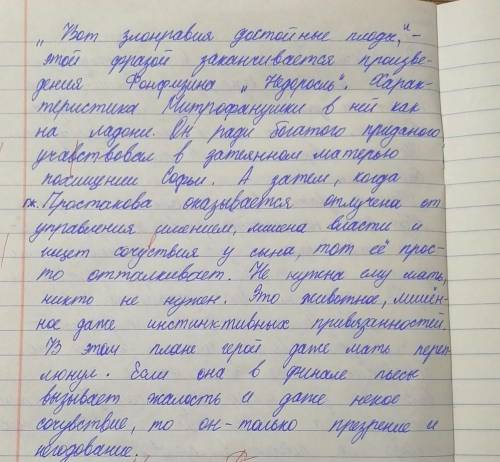 „Вот злонравия достойные плоды," –
этой фразой заканчивается произве-
дения Фонфизина „Недоросль". Харак-
теристика Митрофанушки в ней как
на ладони. Он ради богатого приданого
учавствовал в затеянном матерью
похищении Софьи. А затем, когда
гж. Простакова оказывается отлучена от
управления имением, лишена власти и
ищет сочуствия у сына, тот её прос-
то отталкивает. Не нужна ему мать,
никто не нужен. Это животное, лишён-
ное даже инстинктивных привязанностей.
В этом плане герой даже мать переп-
люнул. Если она в финале пьесы
вызывает жалость и даже некое
сочувствие, то он – только презрение и
негодование.